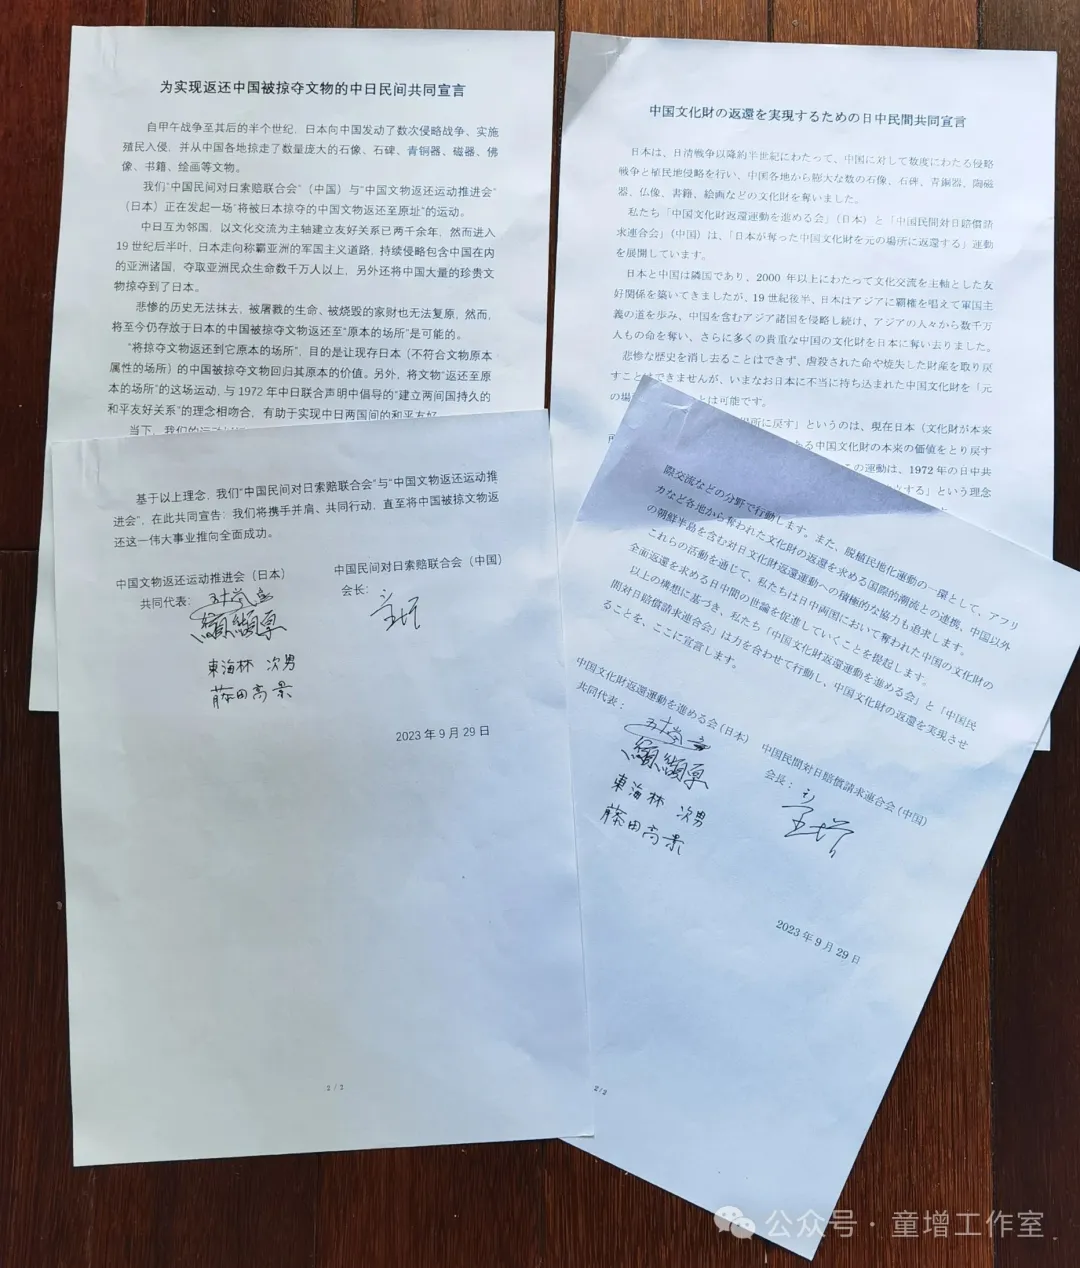 为实现返还中国被掠夺文物的中日民间共同宣言
自甲午战争至其后的半个世纪，日本向中国发动了数次侵略战争、实施
殖民入侵，并从中国各地掠走了数量庞大的石像、石碑、青铜器、磁器、佛
像、书籍、绘画等文物。
我们“中国民间对日索赔联合会”（中国）与“中国文物返还运动推进会”
（日本）正在发起一场“将被日本掠夺的中国文物返还至原址”的运动。
中日互为邻国，以文化交流为主轴建立友好关系已两千余年，然而进入
19 世纪后半叶，日本走向称霸亚洲的军国主义道路，持续侵略包含中国在内
的亚洲诸国，夺取亚洲民众生命数千万人以上，另外还将中国大量的珍贵文
物掠夺到了日本。
悲惨的历史无法抹去，被屠戮的生命、被烧毁的家财也无法复原，然而，
将至今仍存放于日本的中国被掠夺文物返还至“原本的场所”是可能的。
“将掠夺文物返还到它原本的场所”，目的是让现存日本（不符合文物原本
属性的场所）的中国被掠夺文物回归其原本的价值。另外，将文物“返还至原
本的场所”的这场运动，与 1972 年中日联合声明中倡导的“建立两间国持久的
和平友好关系”的理念相吻合，有助于实现中日两国间的和平友好
当下，我们的运动
基于以上理念，我们“中国民间对日索赔联合会”与“中国文物返还运动推
进会”，在此共同宣告：我们将携手并肩、共同行动，直至将中国被掠文物返
还这一伟大事业推向全面成功。
中国文物返还运动推进会（日本）
共同代表：
中国民间对日索赔联合会（中国）
会长：
童增
纐纈厚
東海林 次男
藤田高景
2023 年 9 月 29 日
2 / 2
中国文化財の返還を実現するための日中民間共同宣言
日本は、日清戦争以降約半世紀にわたって、中国に対して数度にわたる侵略
戦争と植民地侵略を行い、中国各地から膨大な数の石像、石碑、青銅器、陶磁
器、仏像、書籍、絵画などの文化財を奪いました。
私たち「中国文化財返還運動を進める会」（日本）と「中国民間対日賠償請
求連合会」（中国）は、「日本が奪った中国文化財を元の場所に返還する」運動
を展開しています。
日本と中国は隣国であり、2000 年以上にわたって文化交流を主軸とした友
好関係を築いてきましたが、19 世紀後半、日本はアジアに覇権を唱えて軍国主
義の道を歩み、中国を含むアジア諸国を侵略し続け、アジアの人々から数千万
人もの命を奪い、さらに多くの貴重な中国の文化財を日本に奪い去りました。
悲惨な歴史を消し去ることはできず、虐殺された命や焼失した財産を取り戻
すことはできませんが、いまなお日本に不当に持ち込まれた中国文化財を「元
の場 とは可能です。
場所に戻す」というのは、現在日本（文化財が本来
る中国文化財の本来の価値をとり戻す
この運動は、1972 年の日中共
する」という理念
際交流などの分野で行動します。また、脱植民地化運動の一環として、アフリ
カなど各地から奪われた文化財の返還を求める国際的潮流との連携、中国以外
の朝鮮半島を含む対日文化財返還運動への積極的な協力も追求します。
これらの活動を通じて、私たちは日中両国において奪われた中国の文化財の
全面返還を求める日中間の世論を促進していくことを提起します。
以上の構想に基づき、私たち「中国文化財返還運動を進める会」と「中国民
間対日賠償請求連合会」は力を合わせて行動し、中国文化財の返還を実現させ
ることを、ここに宣言します。
中国文化財返還運動を進める会（日本）
共同代表：
中国民間対日賠償請求連合会（中国）
会長：
童增
纐纈厚
東海林 次男
藤田高景
2023 年 9 月 29 日
2/2
公众号・童增工作室